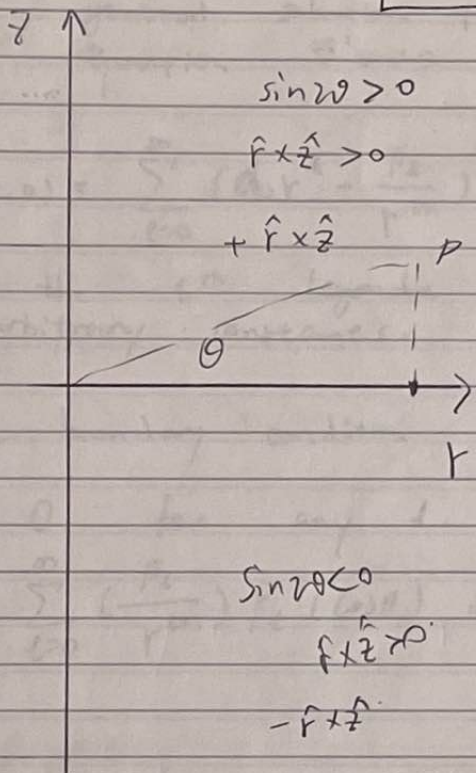 z
sin2θ > 0
r̂ × ẑ > 0
+ r̂ × ẑ
P
θ
r
sin2θ < 0
r̂ × ẑ > 0
- r̂ × ẑ